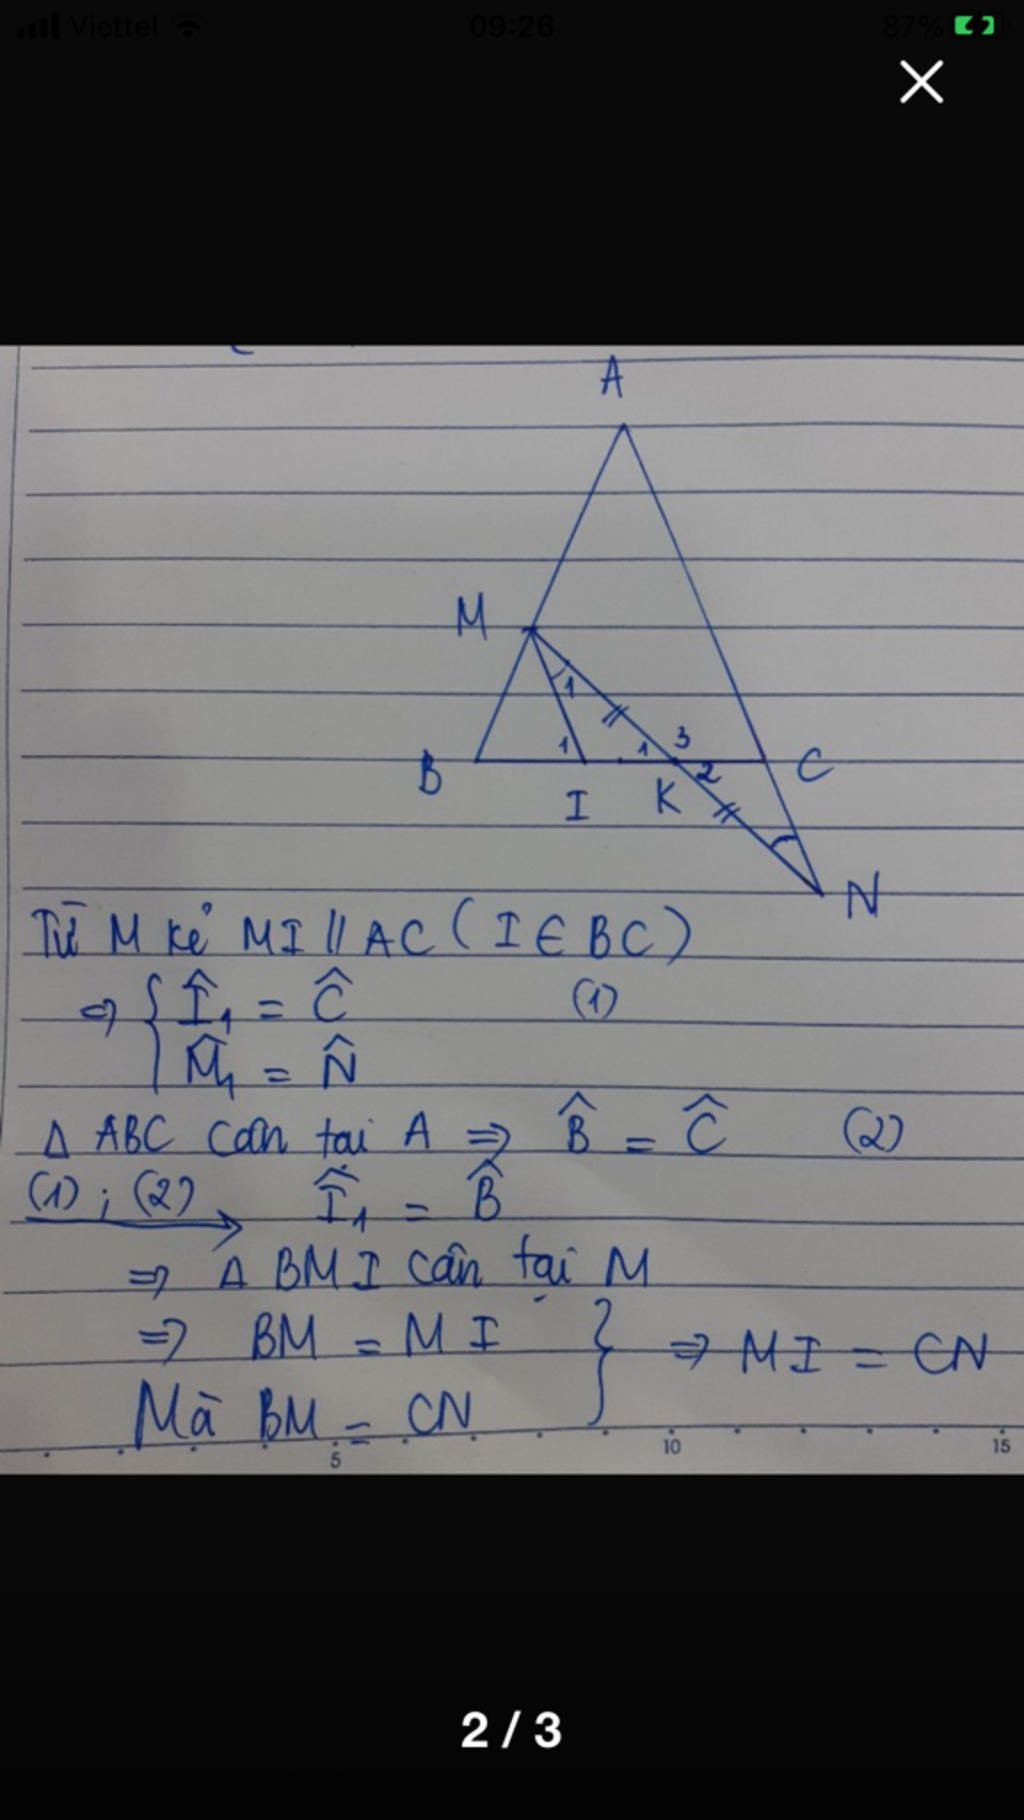 Viettel 09:26 87%
A
M
1
1 1 3
B C
2
I K
N
Từ M kẻ MI // AC ( I ∈ BC )
⇒ { Î₁ = Ĉ (1)
M̂₁ = N̂
Δ ABC cân tại A ⇒ B̂ = Ĉ (2)
(1) ; (2) → Î₁ = B̂
⇒ Δ BMI cân tại M
⇒ BM = MI } ⇒ MI = CN
Mà BM = CN
5 10 15
2 / 3